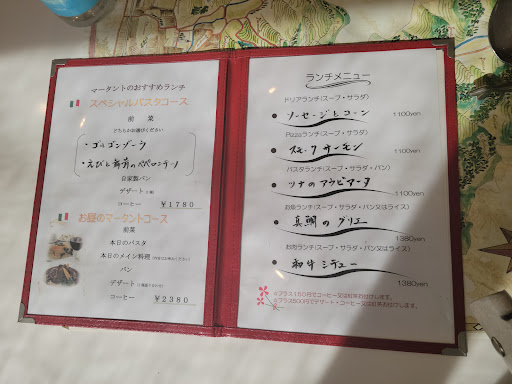 マータントのおすすめランチ
スペシャルパスタコース
前菜
どちらかお選びください
・ゴルゴンゾーラ
・えびと青菜のペペロンチーノ
自家製パン
デザート
コーヒー ￥1780
お昼のマータントコース
前菜
本日のパスタ
本日のメイン料理
パン
デザート
コーヒー ￥2380
ランチメニュー
ドリアランチ(スープ・サラダ)
ソーセージとコーン
1100yen
Pizzaランチ(スープ・サラダ)
スモークサーモン
1100yen
パスタランチ(スープ・サラダ・パン)
ツナのアラビアータ
1100yen
お魚ランチ(スープ・サラダ・パン又はライス)
真鯛のグリエ
1380yen
お肉ランチ(スープ・サラダ・パン又はライス)
和牛シチュー
1380yen
※プラス150円でコーヒー又は紅茶お付けします。
※プラス500円でデザート・コーヒー又は紅茶お付けします。